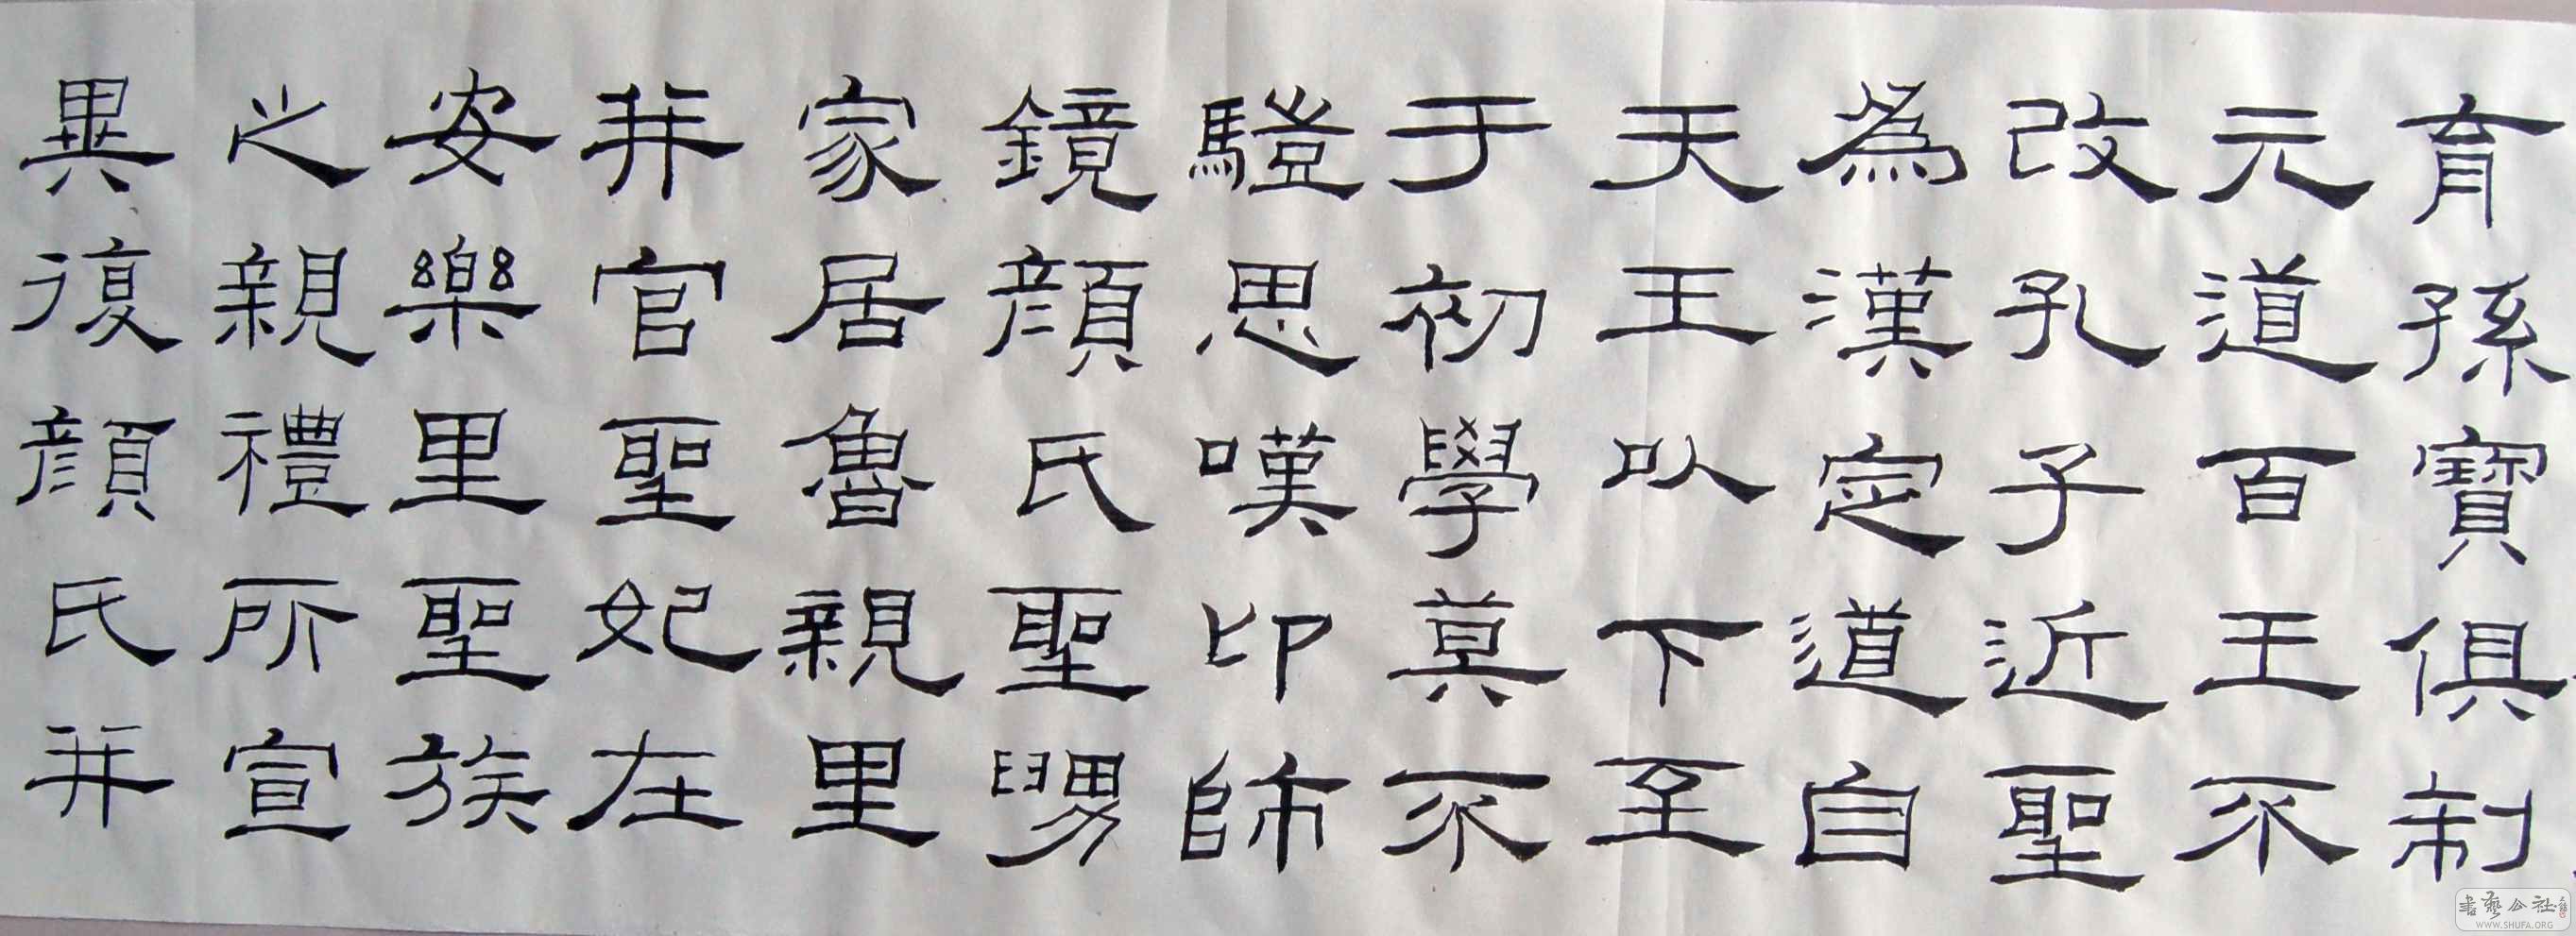 育孫寶俱制
元道百王不
改孔子近聖
為漢定道自
天王以下至
于初學莫不
驥思嘆卬師
鏡顏氏聖舅
家居魯親里
并官聖妃在
安樂里聖族
之親禮所宣
異復顏氏并
書藝公社
WWW.SHUFA.ORG